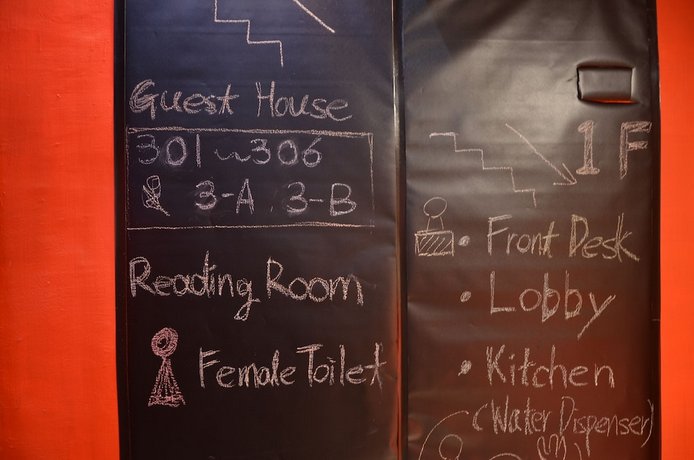 Guest House
301~306
& 3-A 3-B
Reading Room
Female Toilet
1F
• Front Desk
• Lobby
• Kitchen
(Water Dispenser)